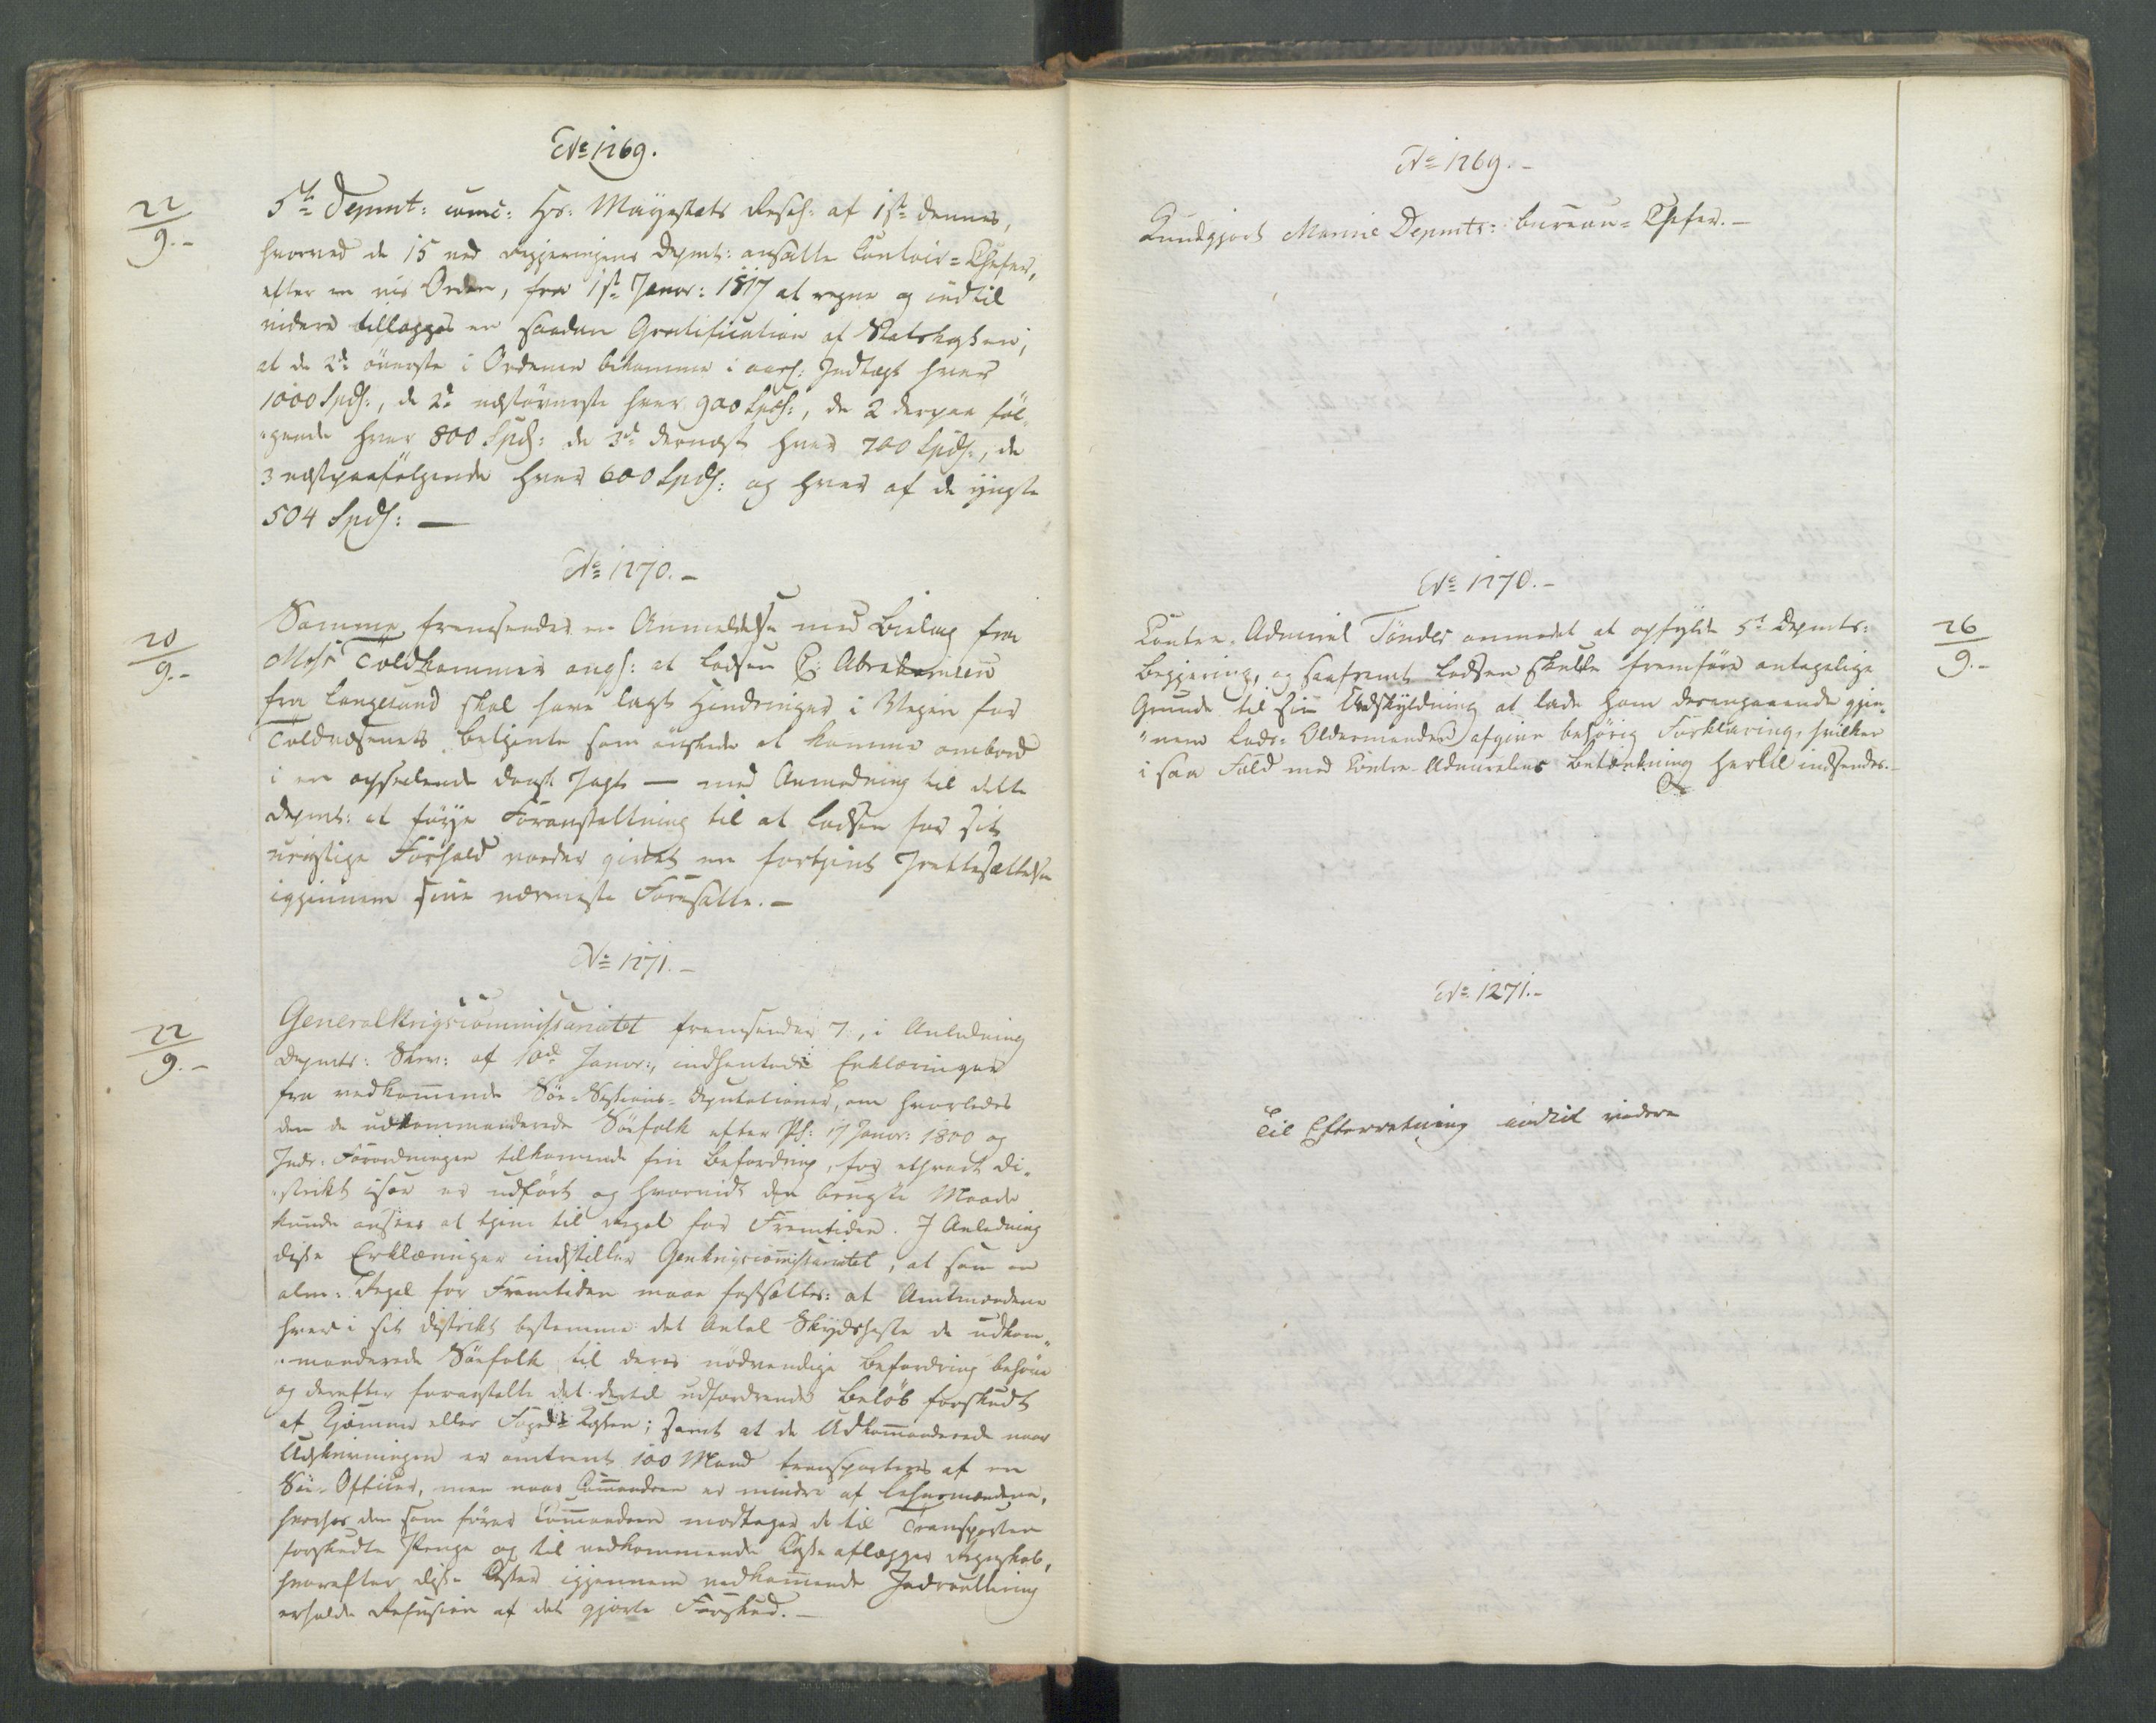 No 1269.
22
9.-
5te Depmt: com: Hs: Mayestæts Resol: af 1ste dennes,
hvorved de 15 ved Regjeringens Depmt: ansatte Contoir=Chefer,
efter en vis Orden, fra 1ste Janvr: 1817 at regne og indtil
videre tillægges en saadan Gratification af Statskassen,
at de 2de överste i Ordenen bekomme i aarl: Indtægt hver
1000 Spd:, de 2de næstöverste hver 900 Spd:, de 2 derpaa föl-
gende hver 800 Spd: de 3de dernæst hver 700 Spd:, de
3 næstpaafölgende hver 600 Spd: og hver af de yngste
504 Spd: —
No 1270.-
20
9.-
Samme fremsender en Anmeldelse med Bielag fra
Moss Toldkammer angl: at Lodsen Abrahamsen
fra Langesund skal have lagt Hindringer i Veyen for
Toldvæsenets Betjente som önskede at komme ombord
i en opseilende dansk Jagt — med Anmodning til dette
Depmt: at föye Foranstaltning til at Lodsen for sit
urigtige Forhold vorder givet en fortjent Irettesættelse
igjennem sine nærmeste Foresatte.-
No 1271.-
22
9.-
Generalkrigscommissariatet fremsender 7, i Anledning
Depmts: Skr: af 10de Janvr:, indhentede Erklæringer
fra vedkommende Söe-Sessions-Deputationer, om hvorledes
den de udkommanderede Söefolk efter Pl: 17 Janvr: 1800 og
Indr: Forordningen tilkommende frie Befordring, for ethvert Di-
strikt især er udfört og hvorvidt den brugte Maade
kunde ansees at tjene til Regel for Fremtiden. I Anledning
disse Erklæringer indstiller Genkrigscommissariatet, at som en
alm: Regel for Fremtiden maae fastsættes: at Amtmændene
hver i sit Distrikt bestemme det Antal Skydsheste de udkom-
manderede Söefolk til deres nödvendige Befordring behöve
og derefter foranstalte det dertil udfordrende Belöb forskudt
af Kjæmner eller Foged-Kassen; samt at de Udkommanderede naar
Udskrivningen er omtrent 100 Mand transporteres af en
Söe-Officier, men naar Commandoen er mindre af Lehnsmændene,
hvorhos den som förer Commandoen modtager de til Transporten
forskudte Penge og til vedkommende Kasse aflægger Regnskab,
hvorefter disse Kasser igjennem vedkommende Indrullering
erholde Refusion af det gjorte Forskud.-
No 1269.-
Kundgjort Marine Depmts: Bureau-Chefer.-
No 1270.-
26
9.-
Contre-Admiral Tönder anmodet at opfylde 5te Depmts:
Begjering, og saafremt Lodsen skulle fremföre antagelige
Grunde til sin Undskyldning at lade ham desangaaende gjen-
nem Lods-Oldermanden afgive behörig Forklaring, hvilken
i saa Fald med Contre-Admiralens Betænkning hertil indsendes.-
No 1271.-
Til Efterretning indtil videre